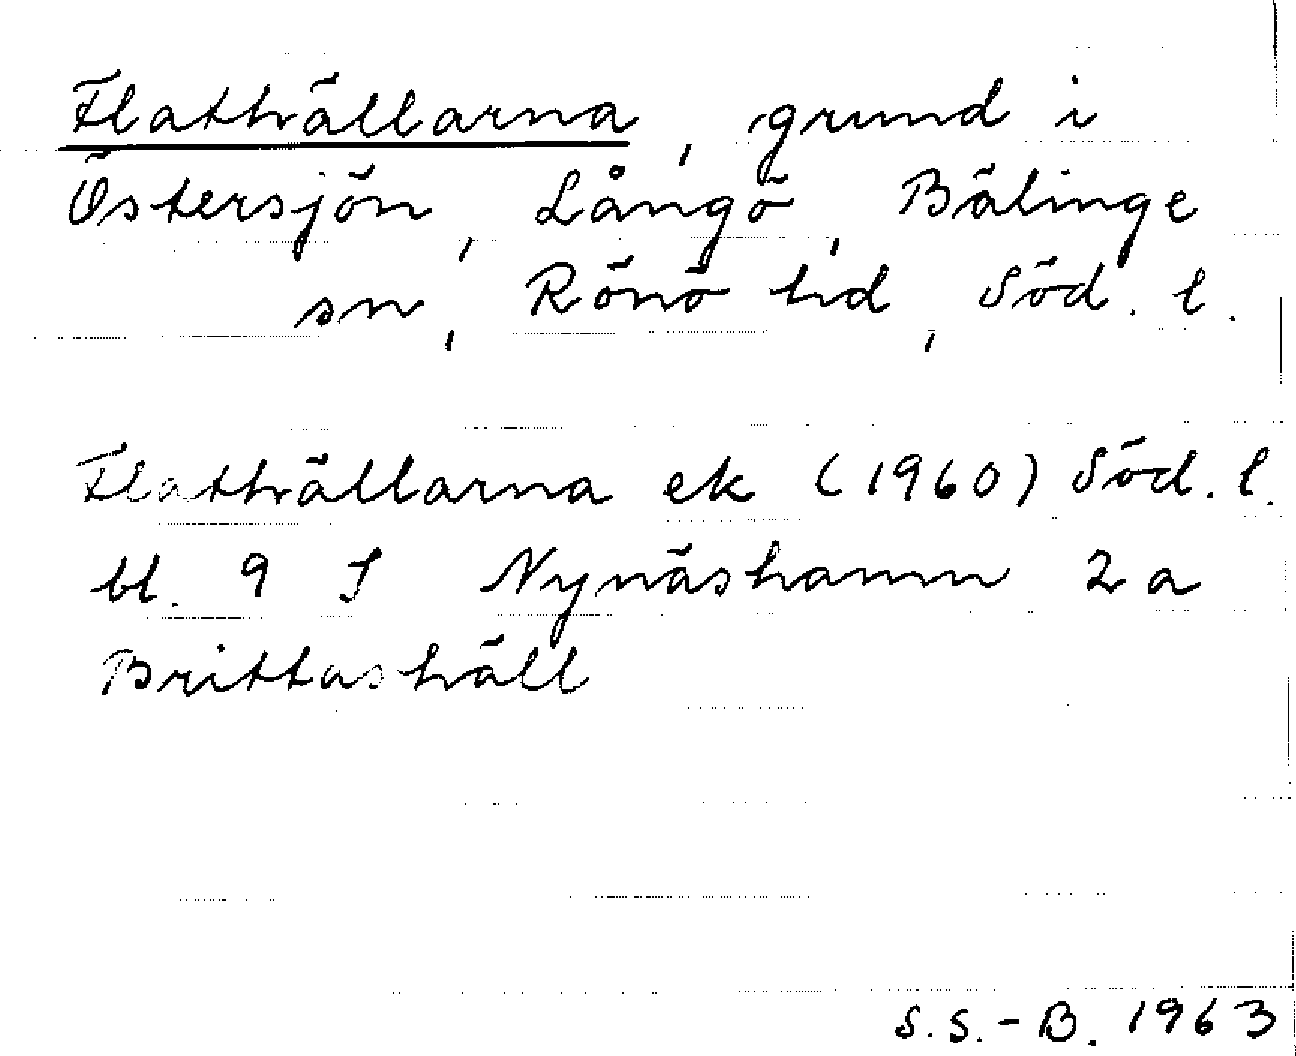 Flathällarna, grund i
Östersjön, Långö, Bälinge
sn, Rönö hd, Söd. l.
Flathällarna ek (1960) Söd. l.
bl. 9 I Nynäshamn 2 a
Brittashäll
S.S.-B. 1963